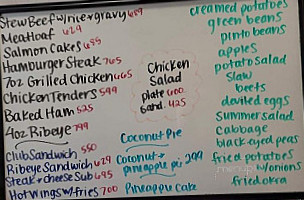 Stew Beef w/rice+gravy 659
Meatloaf 629
Salmon Cakes 655
Hamburger Steak 765
7oz Grilled Chicken 665
Chicken Tenders 599
Baked Ham 525
4oz Ribeye 799
Club Sandwich 550
Ribeye Sandwich 629
Steak + cheese Sub 695
Hot wings w/fries 700
Chicken
Salad
plate 600
Sand. 425
Coconut Pie
Coconut +
pineapple pie 299
Pineapple Cake
creamed potatoes
green beans
pinto beans
apples
potato salad
slaw
beets
deviled eggs
summer salad
cabbage
black-eyed peas
fried potatoes
w/onions
fried okra